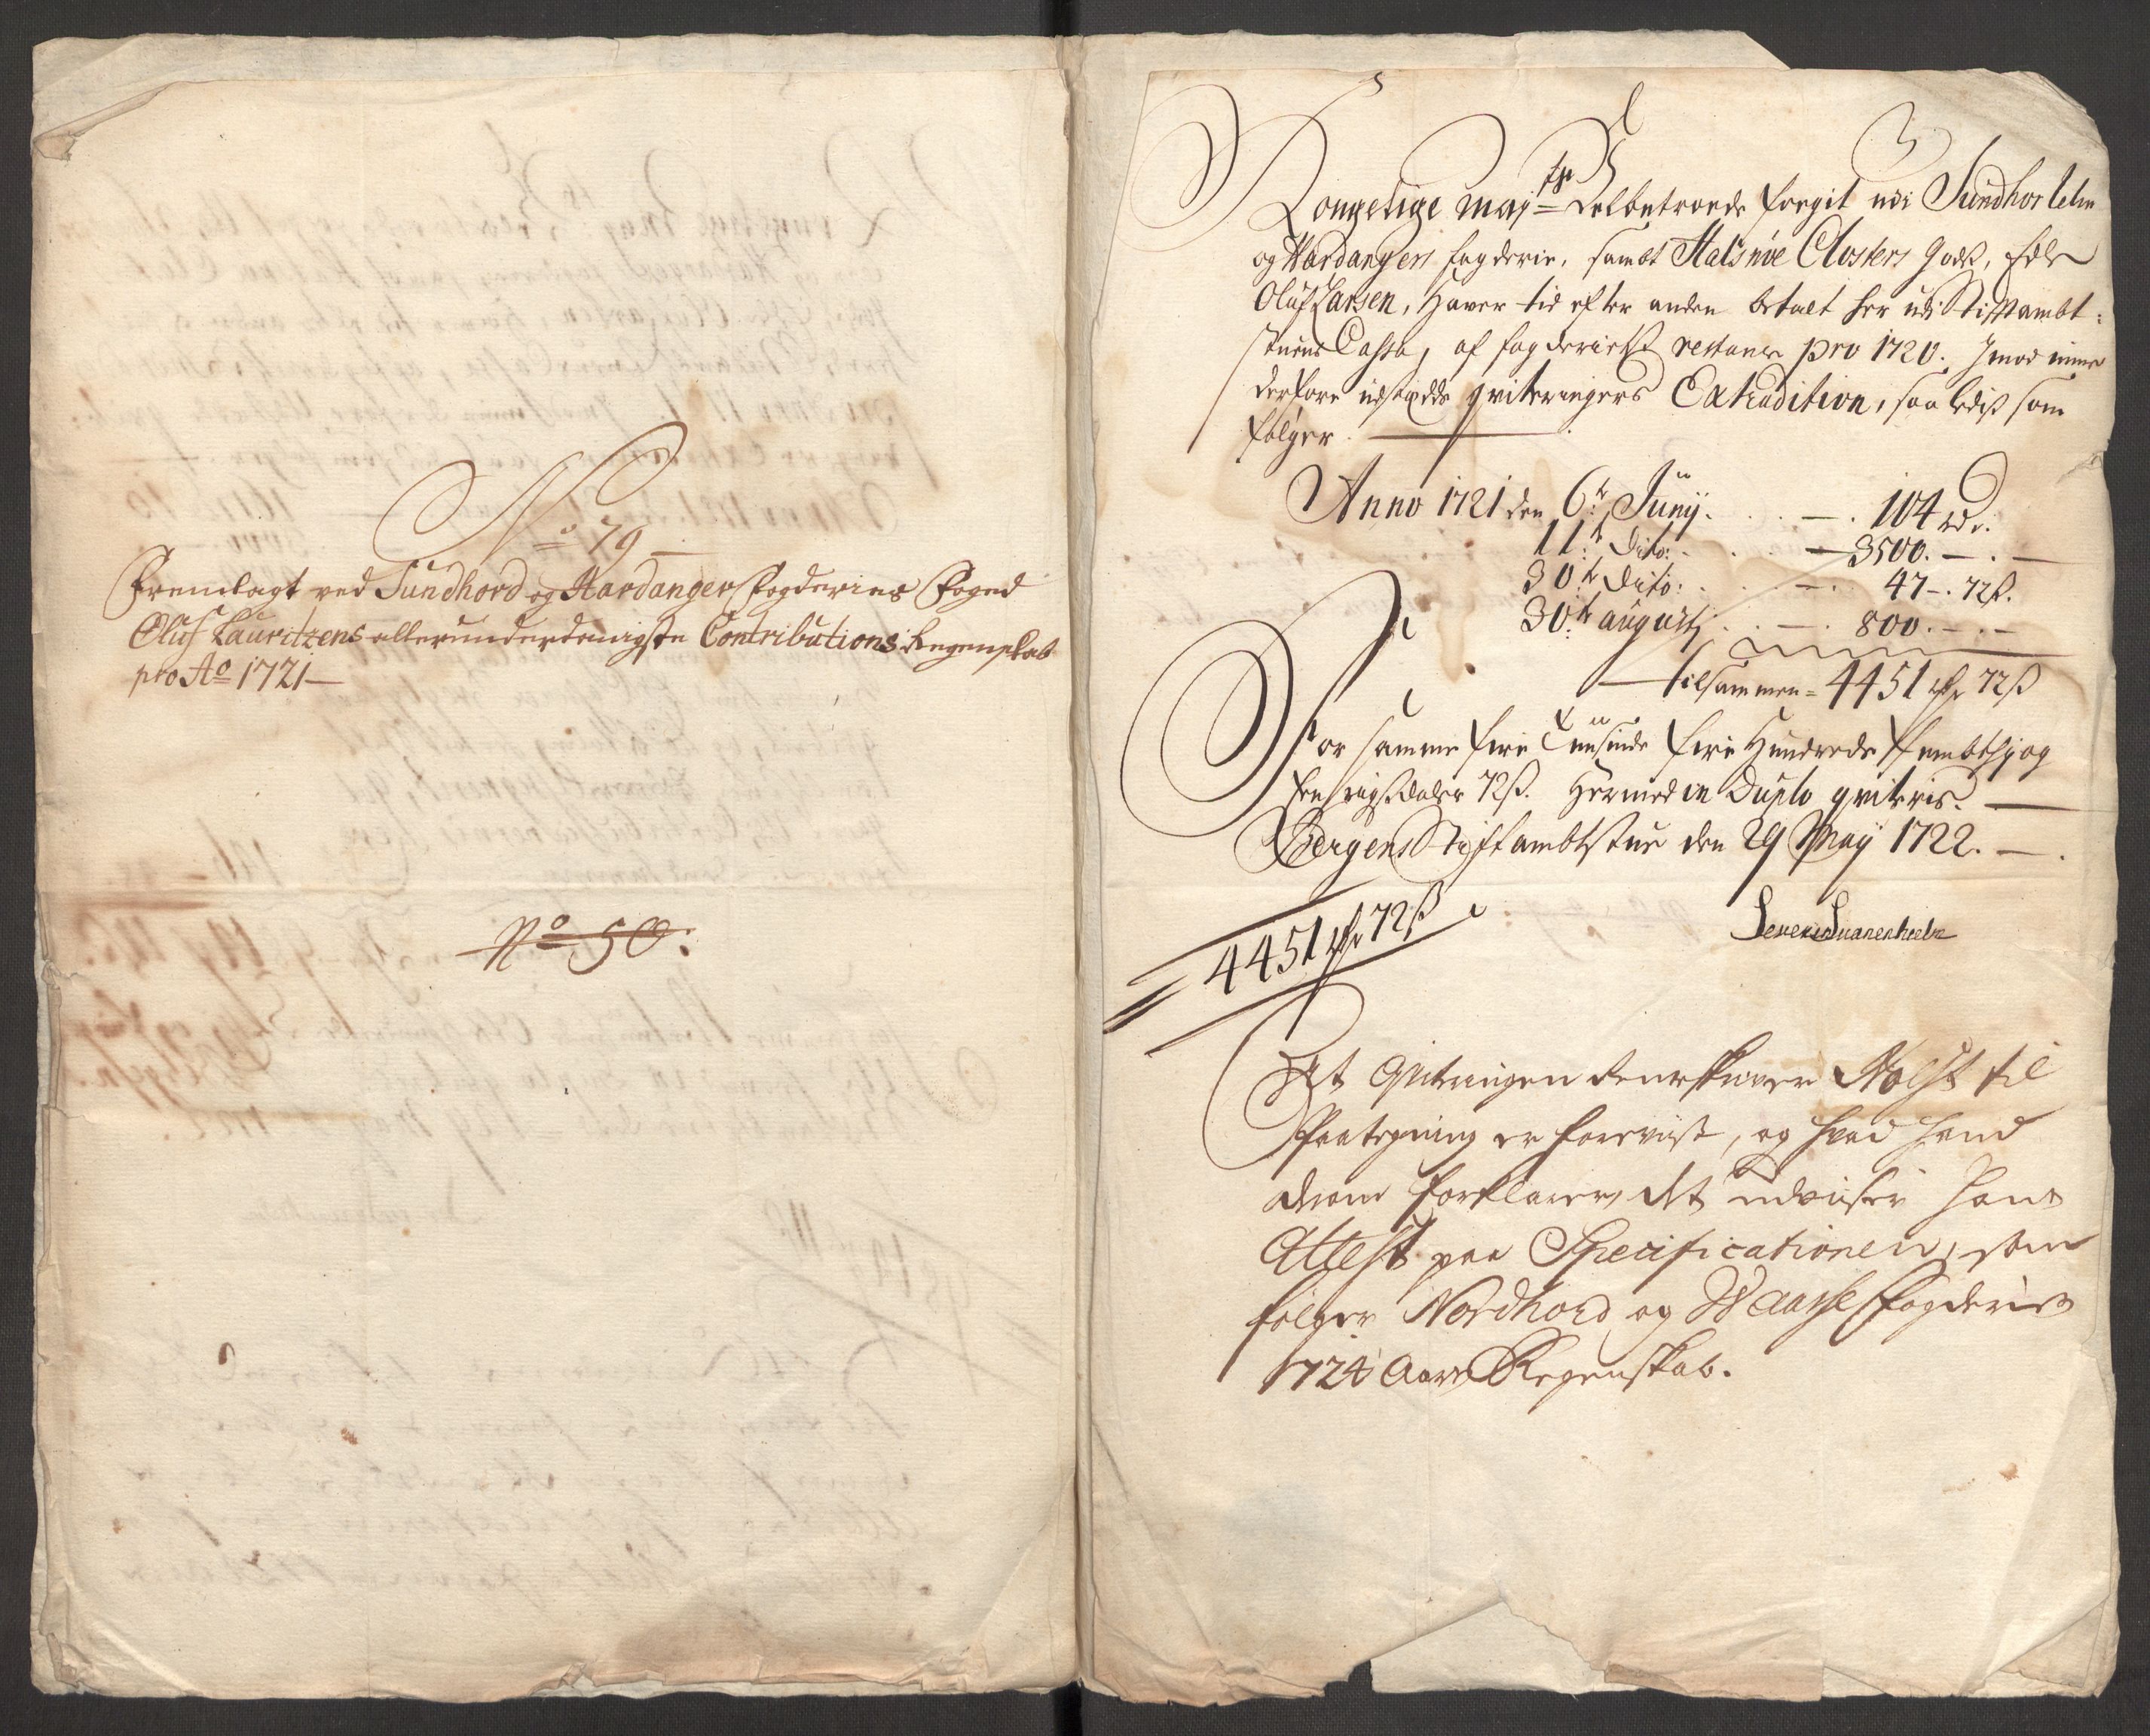 No 79
Fremlagt ved Sundhord og Hardanger Fogderies Foged
Oluf Lauritzens allerunderdanigste Contributions Regenskab
pro Ao 1721
No 50:
Kongelige May:ts Velbetroede fogit udi Sundhorlehn
og Hardangers fogderie, sambt Halsnöe Closters Gods, Edle
Oluf Larsen, Haver tid efter anden betalt her udi Stiftambt:
stuens Cassa, af fogderiets restance pro 1720. Imod mine
derfore udstædde qviteringers Extradition, saaledis som
følger.
Anno 1721 den 6te Junij. 104 rdr.
11te Dito: 3500. — . —
30te Dito: 47 — . 72ß.
30te augustj 800. — . —
tilsammen = 4451 rdr 72ß
For samme fire Tuusinde fire Hundrede Fembthj og
Een rigsdaler 72ß. Hermed in Duplo qviteris.
Bergens Stiftambtstue den 29 May 1722.
Severin Svanenhielm
4451 rdr 72ß
At Qviteringen Renteskriver Holst til
Paategning er foreviist, og hvad hand
derom forklarer, det udviiser hans
Attest paa Specificationen, som
følger Nordhord og Waasse Fogderies
1724 Aars Regenskab.